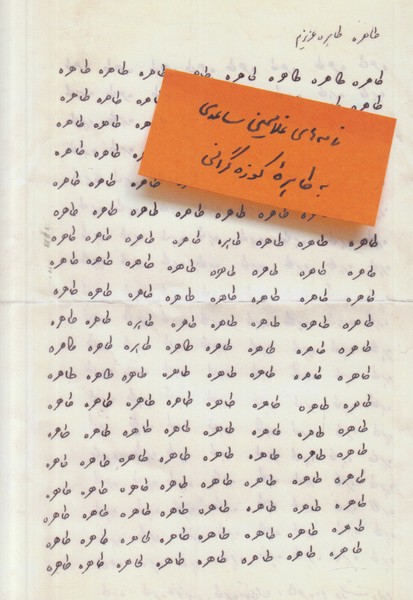 طاهره طاهره عزیزم
طاهره طاهره طاهره طاهره طاهره طاهره طاهره طاهره
طاهره طاهره طاهره
نامه‌های غلامحسین ساعدی
به طاهرهٔ کوزه‌گرانی
طاهره طاهره
طاهره طاهره
طاهره طاهره طاهره
طاهره طاهره طاهره طاهره طاهره طاهره
طاهره طاهره طاهره طاهره طاهره طاهره طاهره طاهره
طاهره طاهره طاهره طاهره طاهره طاهره طاهره طاهره
طاهره طاهره طاهره طاهره طاهره طاهره طاهره طاهره
طاهره طاهره طاهره طاهره طاهره طاهره طاهره طاهره
طاهره طاهره طاهره طاهره طاهره طاهره طاهره طاهره
طاهره طاهره طاهره طاهره طاهره طاهره طاهره طاهره
طاهره طاهره طاهره طاهره طاهره طاهره طاهره طاهره
طاهره طاهره طاهره طاهره طاهره طاهره طاهره طاهره
طاهره طاهره طاهره طاهره طاهره طاهره طاهره طاهره
طاهره طاهره طاهره طاهره طاهره طاهره طاهره طاهره
طاهره طاهره طاهره طاهره طاهره طاهره طاهره طاهره
طاهره طاهره طاهره طاهره طاهره طاهره طاهره طاهره
طاهره طاهره طاهره طاهره طاهره طاهره طاهره طاهره